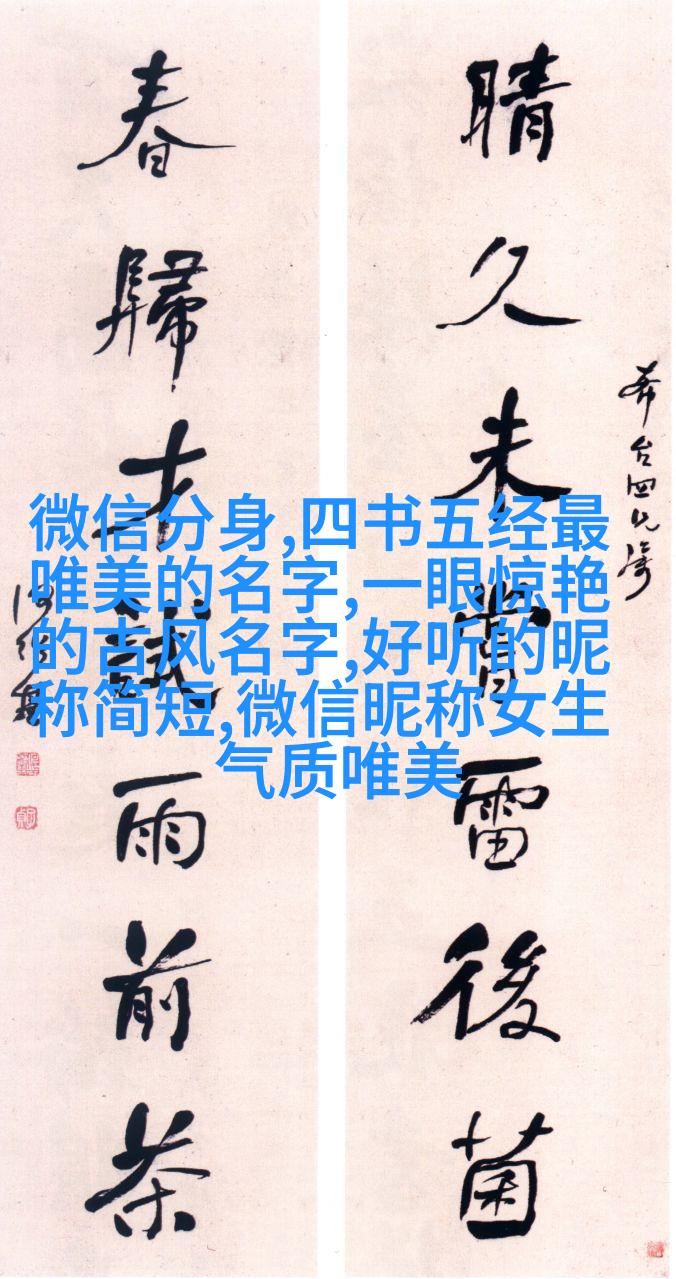 晴久未嘗雷後菌
春歸才試雨前茶
何紹基
微信分身,四书五经最
唯美的名字,一眼惊艳
的古风名字,好听的昵
称简短,微信昵称女生
气质唯美